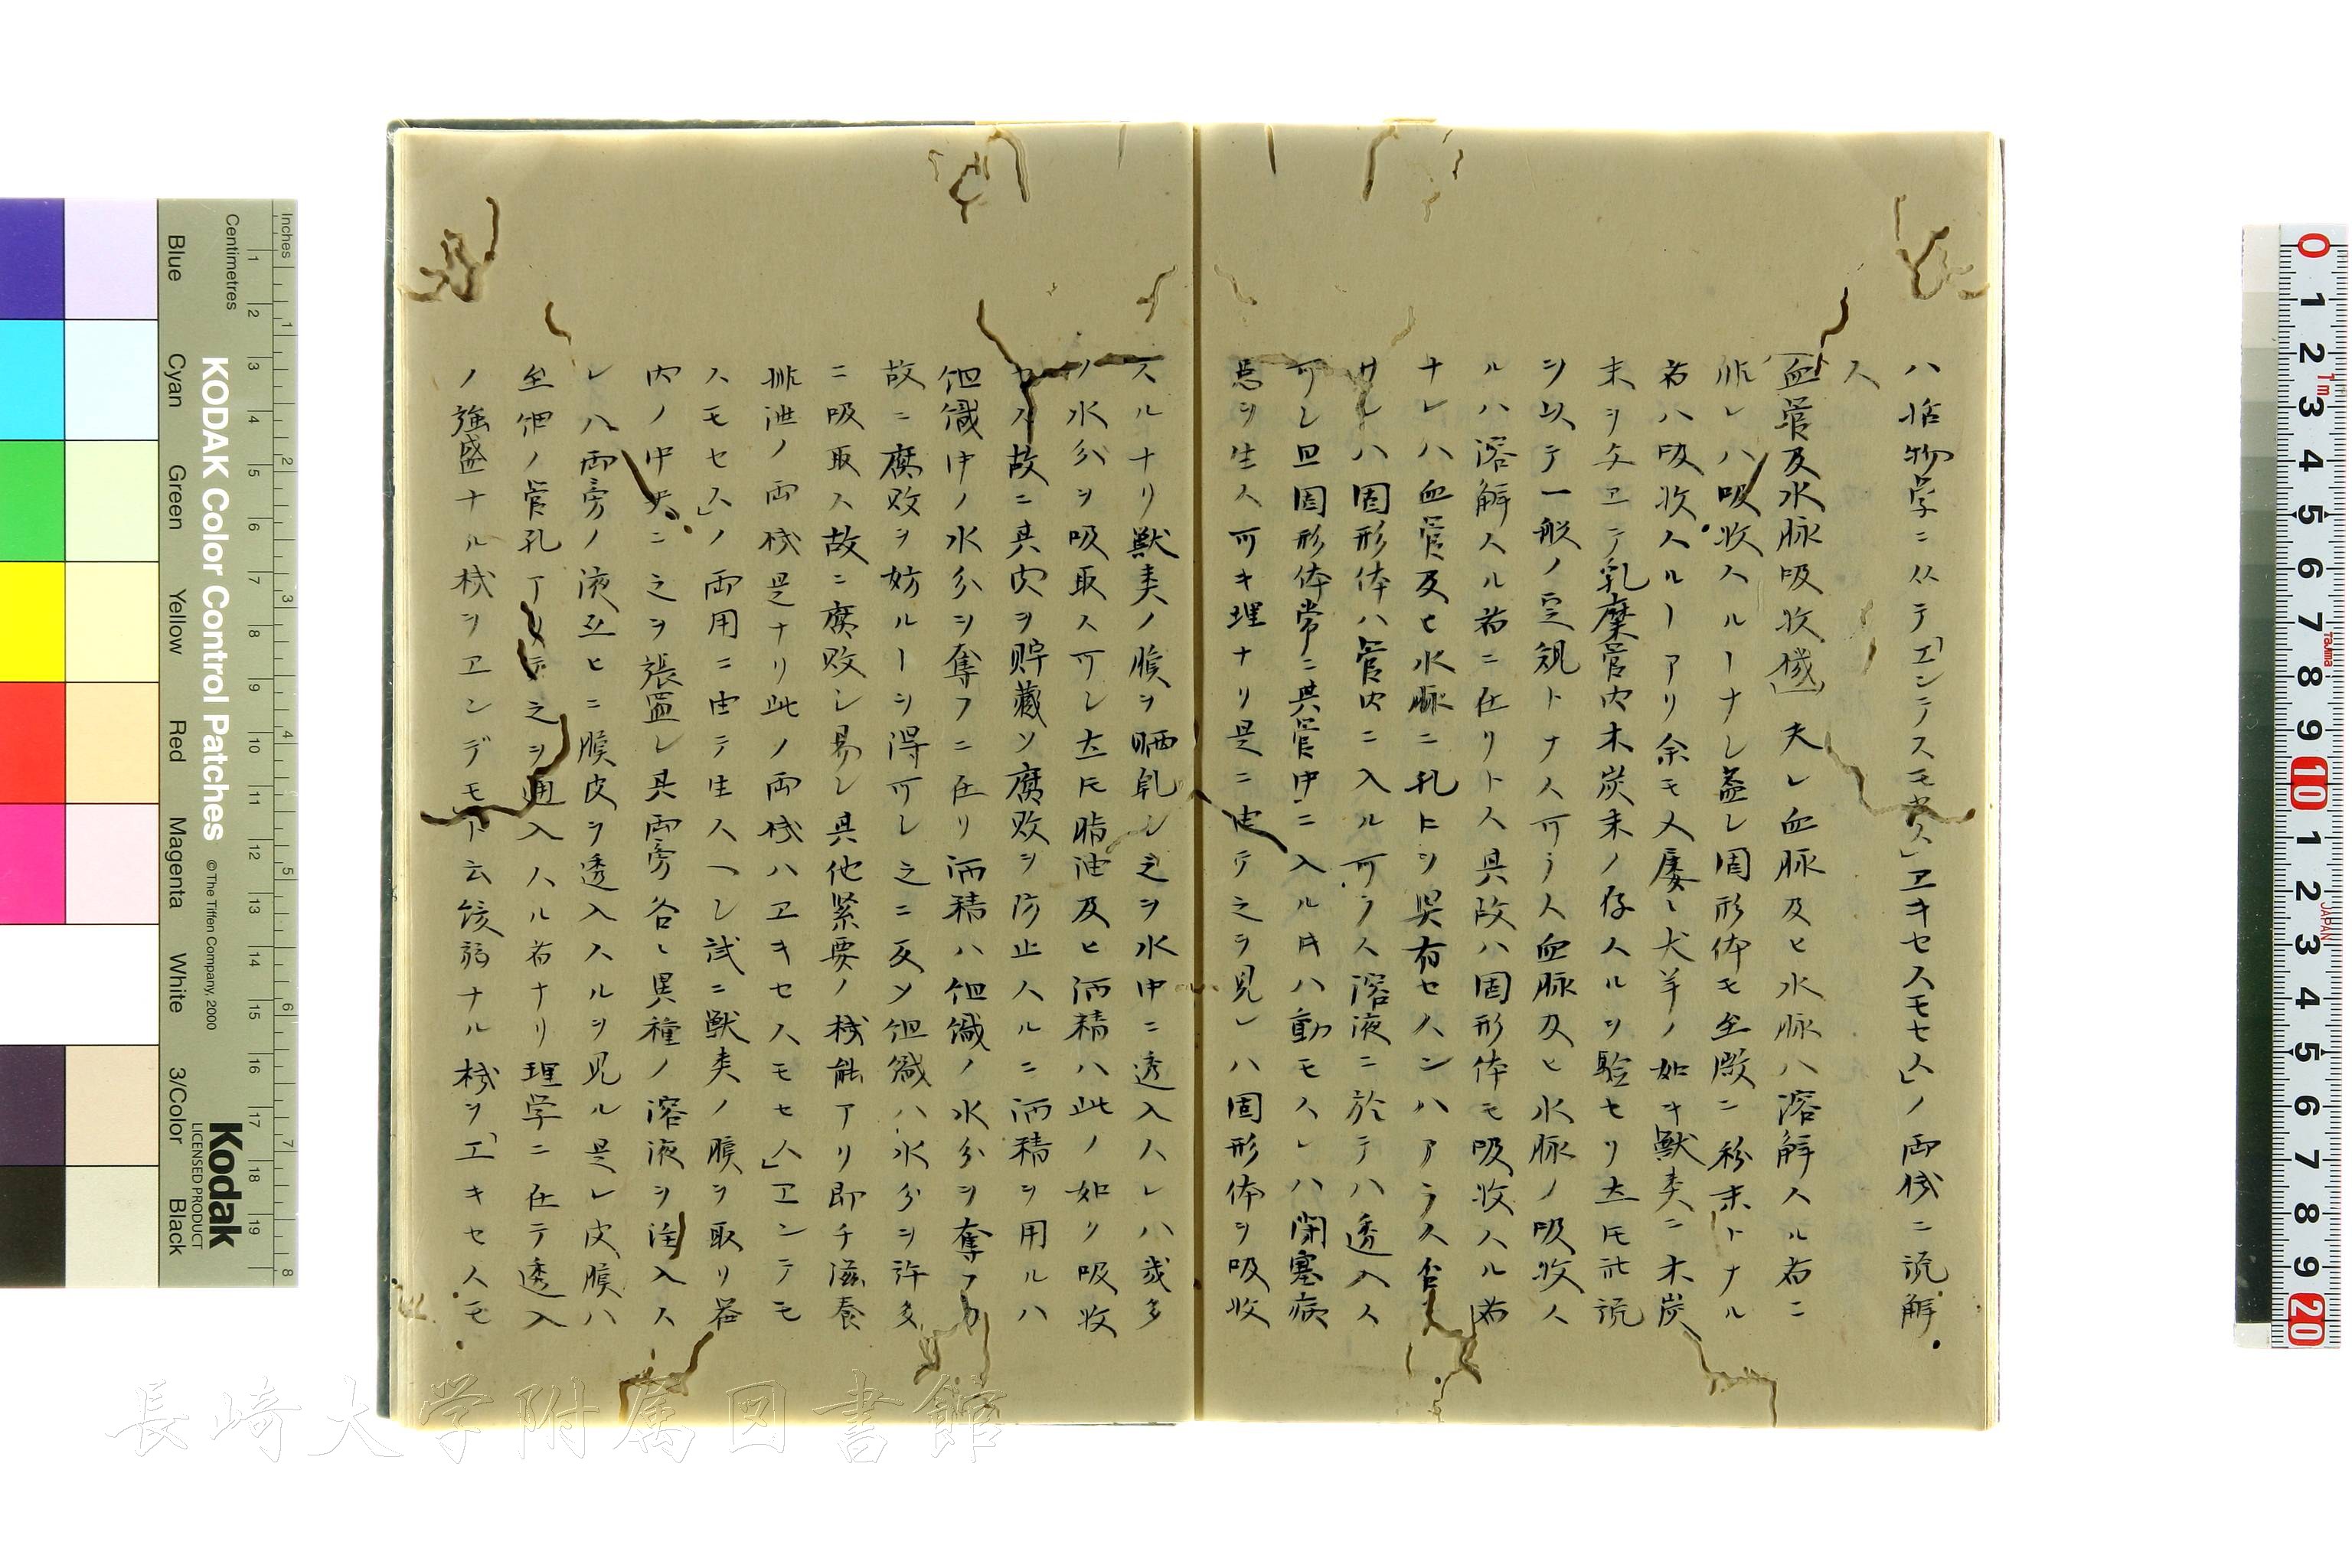 ハ活物学ニ从テ「エンデスモセス」ヱキセスモセス」ノ両機ニ流解
ス
血管及水脉吸收機」 夫レ血脉及ヒ水脉ハ溶解スル者ニ
非レハ吸收スルーナシ蓋シ固形体モ至微ニ粉末トナル
者ハ吸收スルーアリ余モ又屡〻犬羊ノ如キ獣类ニ木炭
末ヲ与ヱテ乳糜管内木炭末ノ存スルヲ驗セリ𪜈此説
ヲ以テ一般ノ定規トナス可ラス血脉及ヒ水脉ノ吸收ス
ルハ溶解スル者ニ在リトス其故ハ固形体モ吸收スル者
ナレハ血管及ヒ水脈ニ孔トヲ具有セスンハアラス若
サレハ固形体ハ管内ニ入ル可ラス溶液ニ於テハ透入ス
可シ且固形体常ニ其管中ニ入ル片ハ動モスレハ閉塞病
患ヲ生ス可キ理ナリ是ニ由テ之ヲ見レハ固形体ヲ吸收
スルナリ獣类ノ膜ヲ晒乹シ之ヲ水中ニ透入スレハ或多
ノ水分ヲ吸取ス可シ𪜈脂油及ヒ洒精ハ此ノ如ク吸收
セス故ニ其肉ヲ貯藏ソ腐敗ヲ防止スルニ洒精ヲ用ルハ
但織中ノ水分ヲ奪フニ在リ洒精ハ但織ノ水分ヲ奪フカ
故ニ腐敗ヲ妨ルーヲ得可シ之ニ反ソ但織ハ水分ヲ許多
ニ吸取ス故ニ腐敗シ易シ其他緊要ノ機能アリ即チ滋養
排泄ノ両機是ナリ此ノ両機ハヱキセスモセス」ヱンデモ
スモセス」ノ両用ニ由テ生ス(シ試ニ獣类ノ膜ヲ取リ器
内ノ中央ニ之ヲ張置シ其両旁各〻異種ノ溶液ヲ注入ス
レハ両旁ノ液互ヒニ膜皮ヲ透入スルヲ見ル是レ皮膜ハ
至細ノ管孔アリテ之ヲ通入スル者ナリ理学ニ在テ透入
ノ強盛ナル機ヲヱンデモト云緩弱ナル機ヲ「エキセスモ
KODAK Color Control Patches
© The Tiffen Company, 2000
Kodak
LICENSED PRODUCT
Inches
Centimetres
Blue
Cyan
Green
Yellow
Red
Magenta
White
3/Color
Black
長崎大学附属図書館